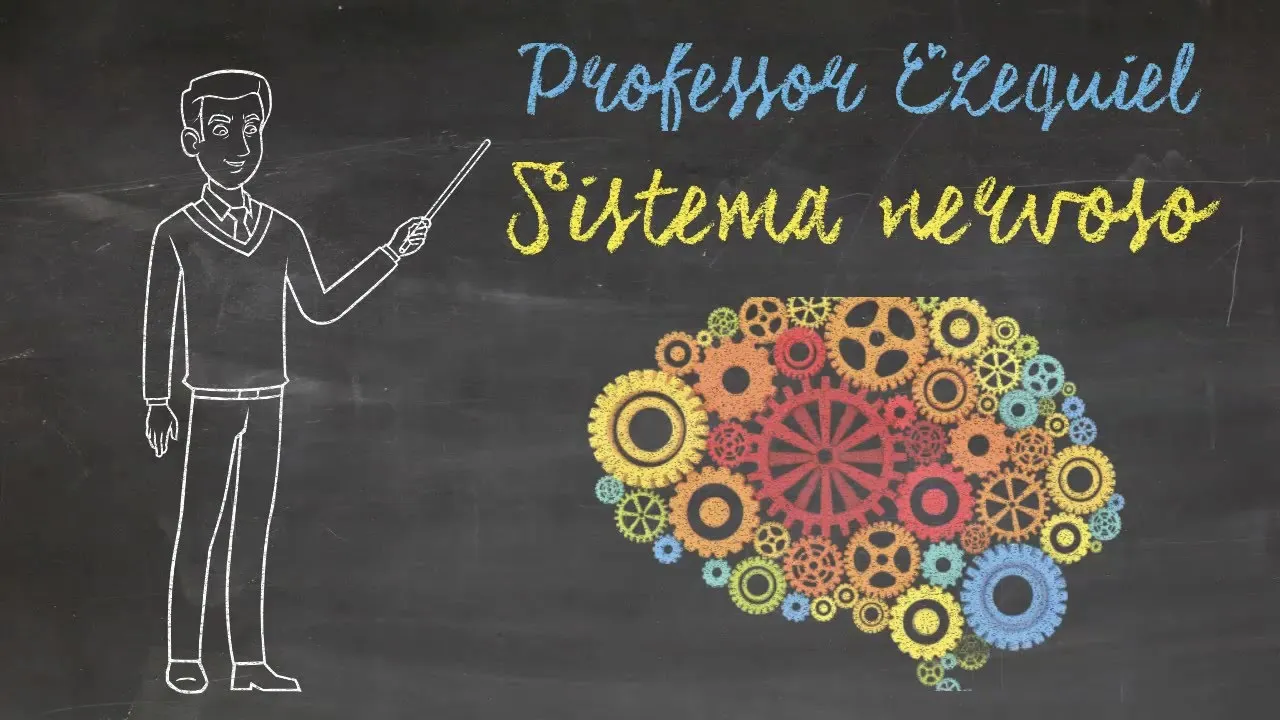 Professor Ezequiel
Sistema nervoso